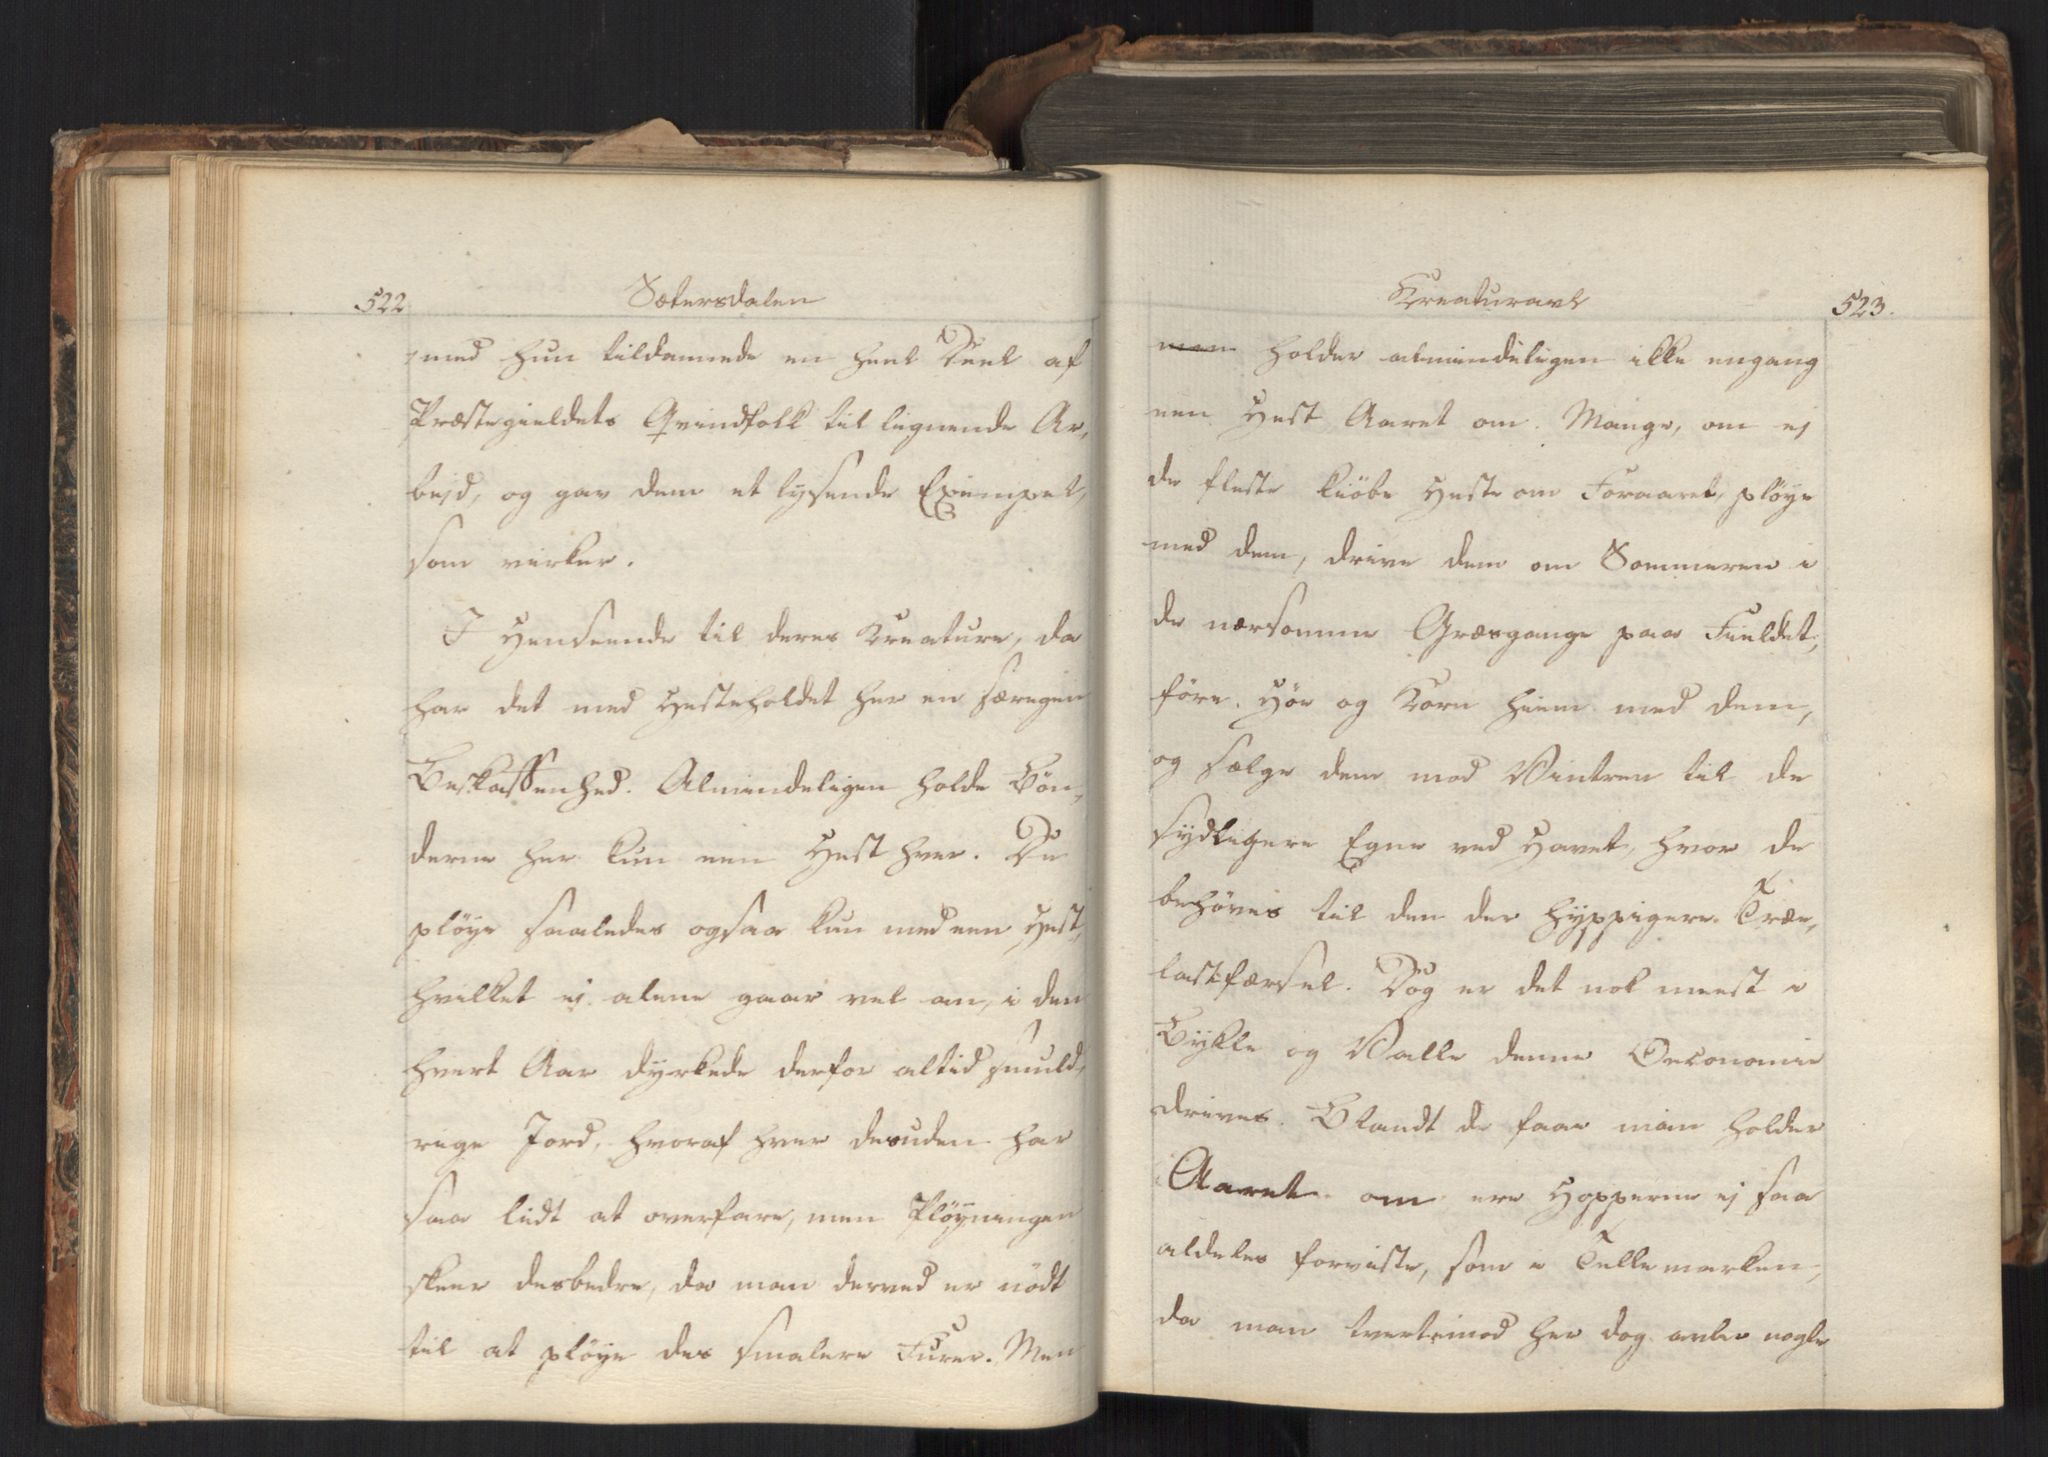 522
Sætersdalen
med hun tildannede en heel Deel af
Præstegieldets Qvindfolk til lignende Ar,
bejd, og gav dem et lysende Exempel,
som virker.
I Henseende til deres Kreature, da
har det med Hesteholdet her en særegen
Beskaffenhed. Almindeligen holde Bön,
derne her kun een Hest hver. De
plöye saaledes ogsaa kun med een Hest,
hvilket ej alene gaar vel an, i den
hvert Aar dyrkede derfor altid smuld,
rige Jord, hvoraf hver desuden har
saa lidt at overfare, men Plöyningen
skeer desbedre, da man derved er nödt
til at plöye des smalere Furer. Men
Kreaturavl
523.
man holder almindeligen ikke engang
een Hest Aaret om. Mange, om ej
de fleste kiöbe Heste om Foraaret, plöye
med dem, drive dem om Sommeren i
de nærsomme Græsgange paa Fieldet,
före Höe og Korn hiem med dem,
og sælge dem mod Vintren til de
sydligere Egne ved Havet, hvor de
behöves til den der hyppigere Træ,
lastfærsel. Dog er det nok meest i
Bykle og Valle denne Oeconomie
drives. Blandt de faae man holder
Aaret om ere Hopperne ej saa
aldeles forviste, som i Tellemarken,
da man tvertimod her dog avler nogle